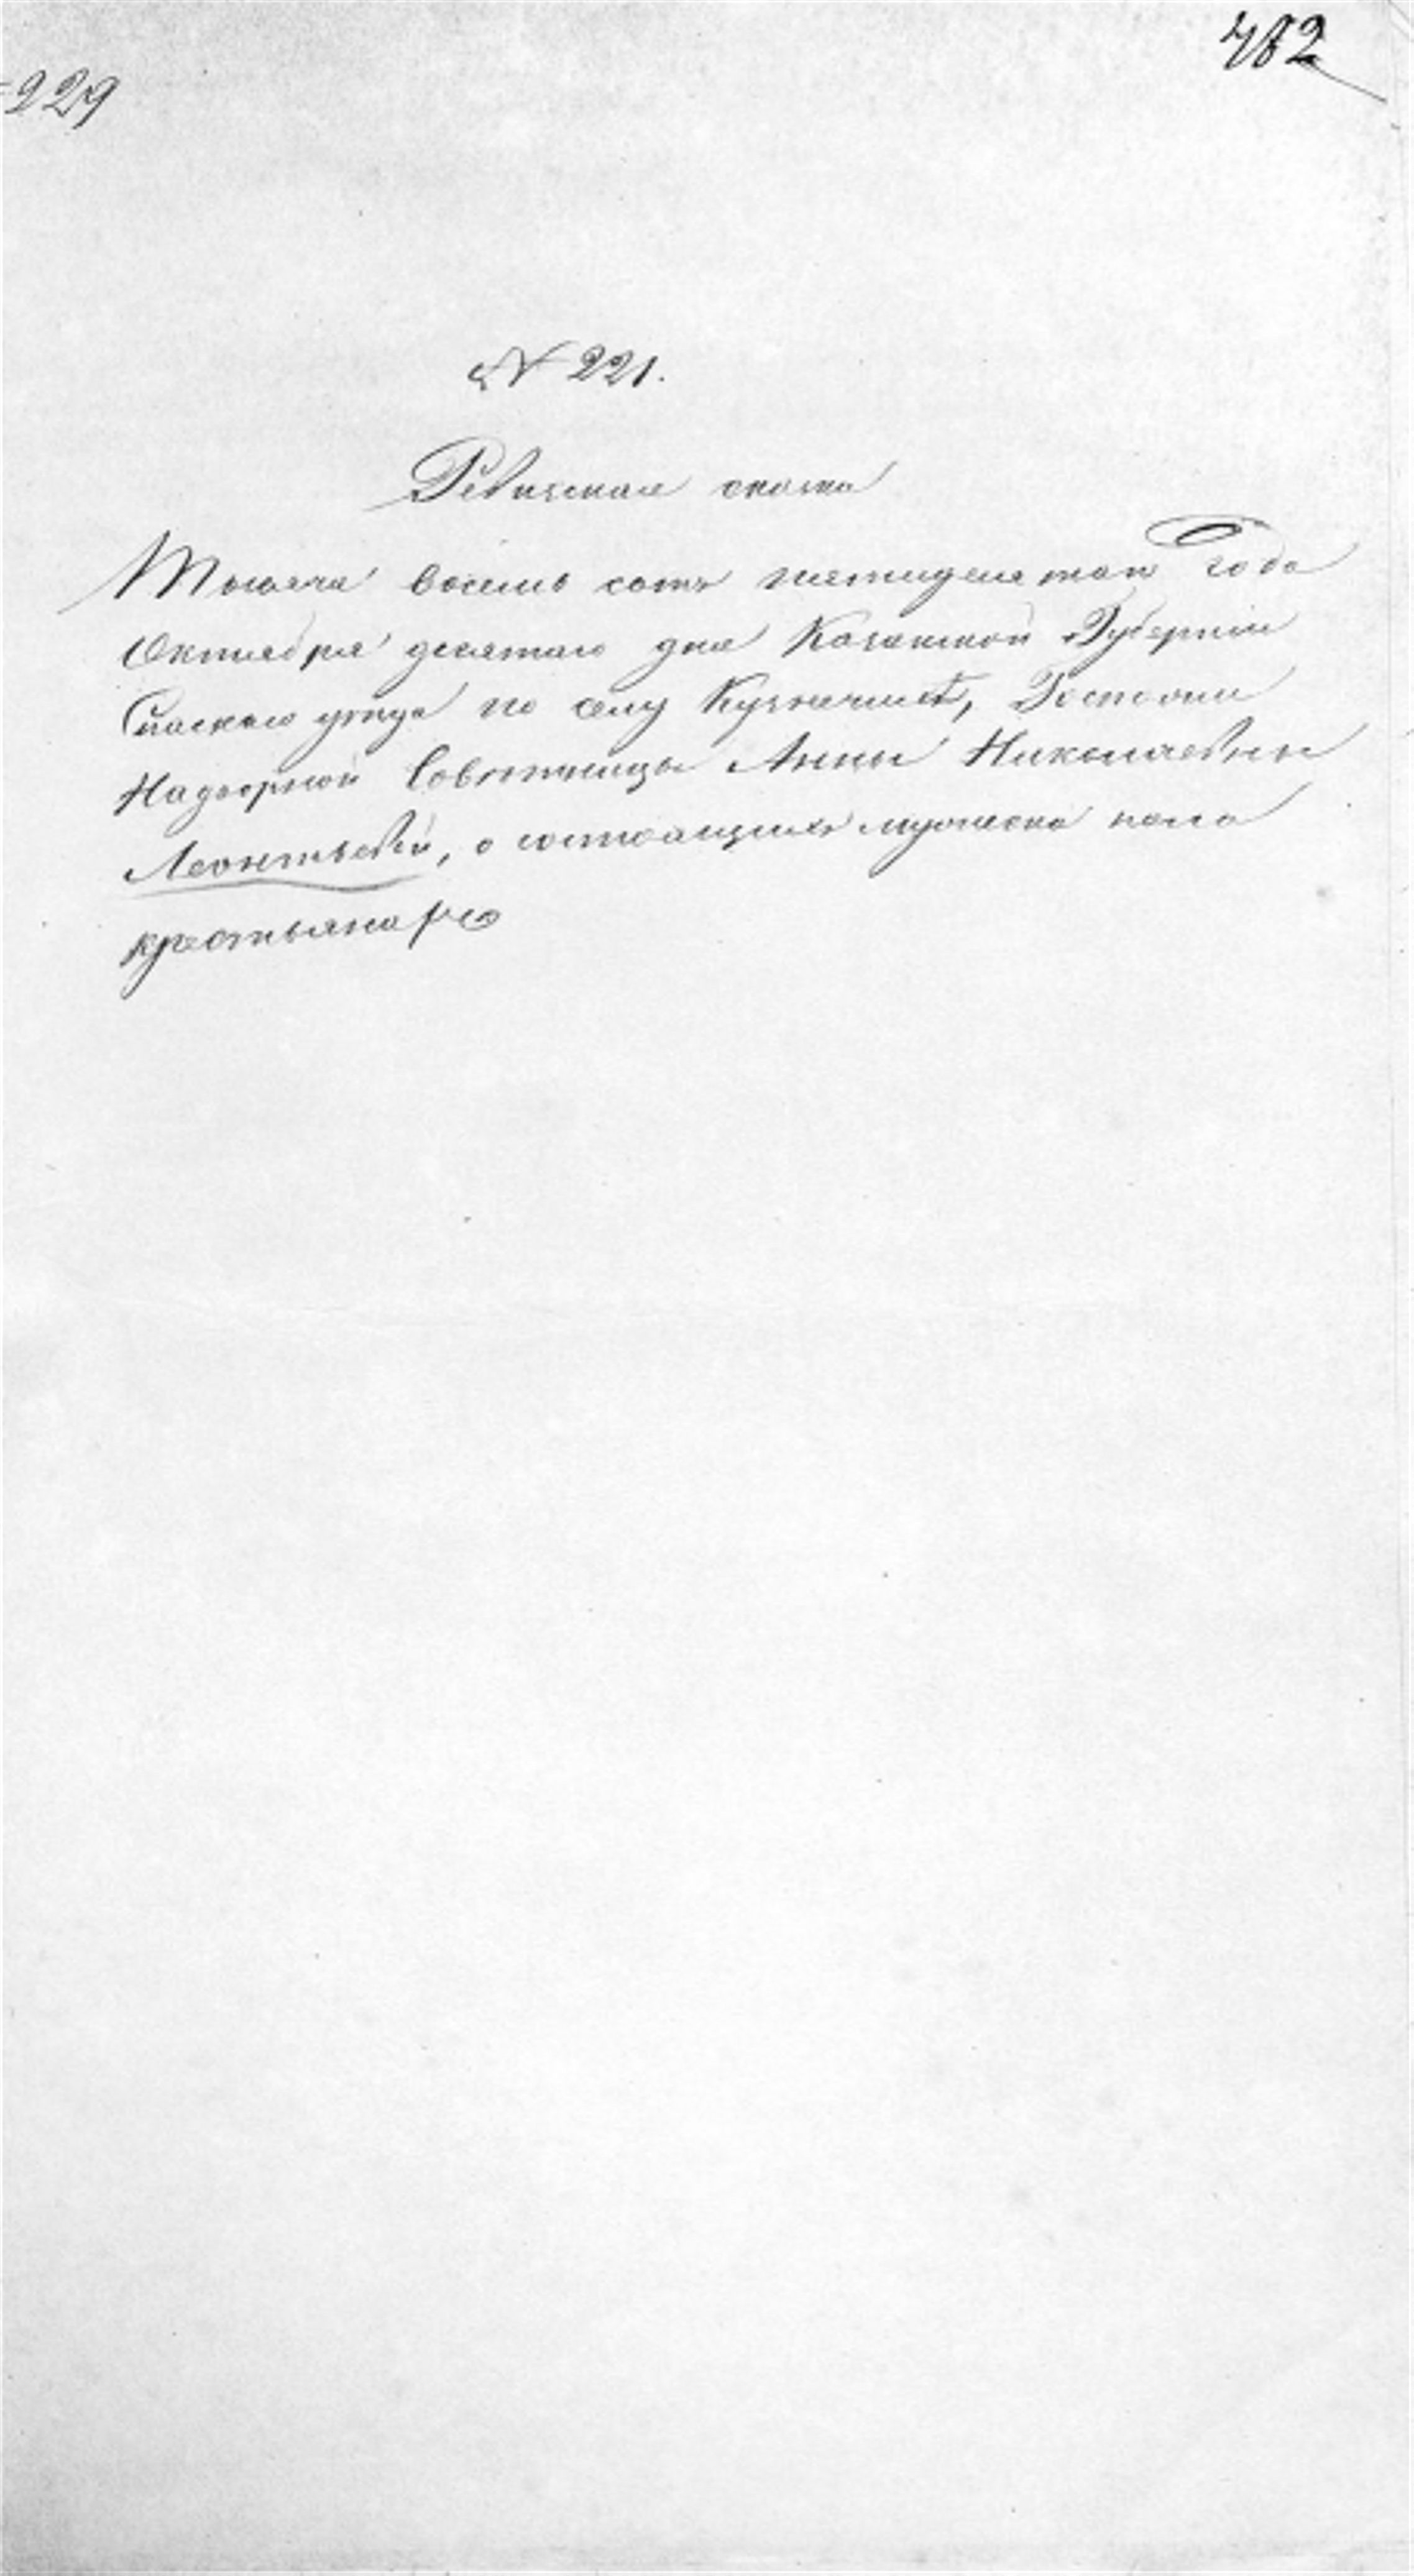 482
229
№ 221.
Ревизская сказка
Тысяча восемь сотъ пятидесятаго года
Октября десятаго дня Казанской Губерніи
Спаскаго уѣзда по селу Кузнечихѣ, Госпожи
Надворной Совѣтницы Анны Николаевны
Леонтьевой, о состоящихъ мужеска пола
крестьянахъ